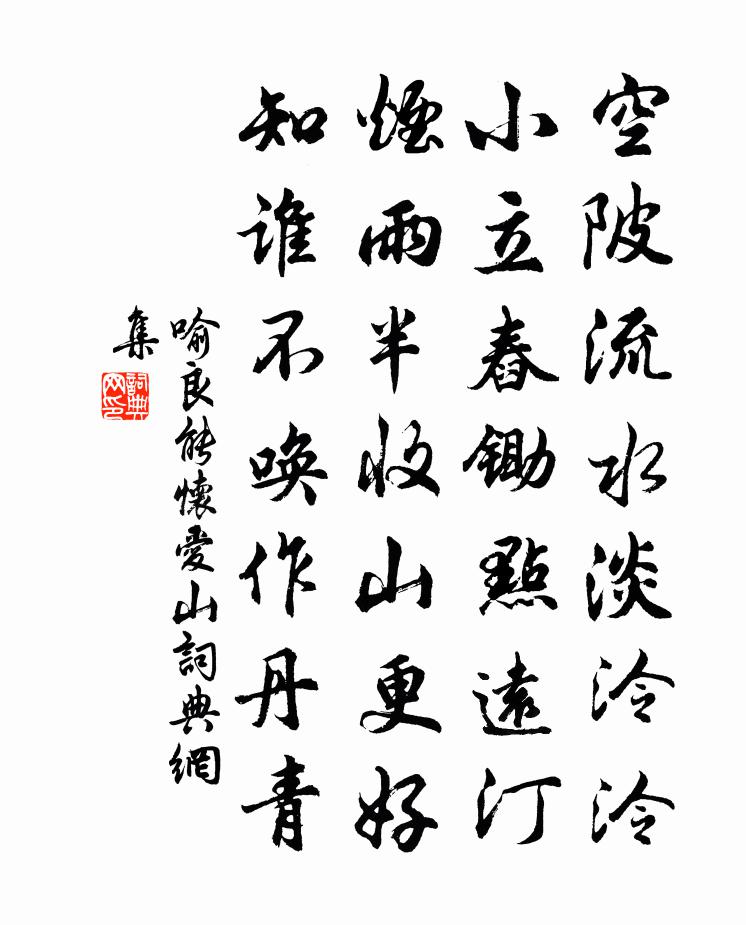 空陂流水淡泠泠
小立舂鋤點遠汀
煙雨半收山更好
知誰不喚作丹青
喻良能懷愛山詞典網
集
詞典
网印